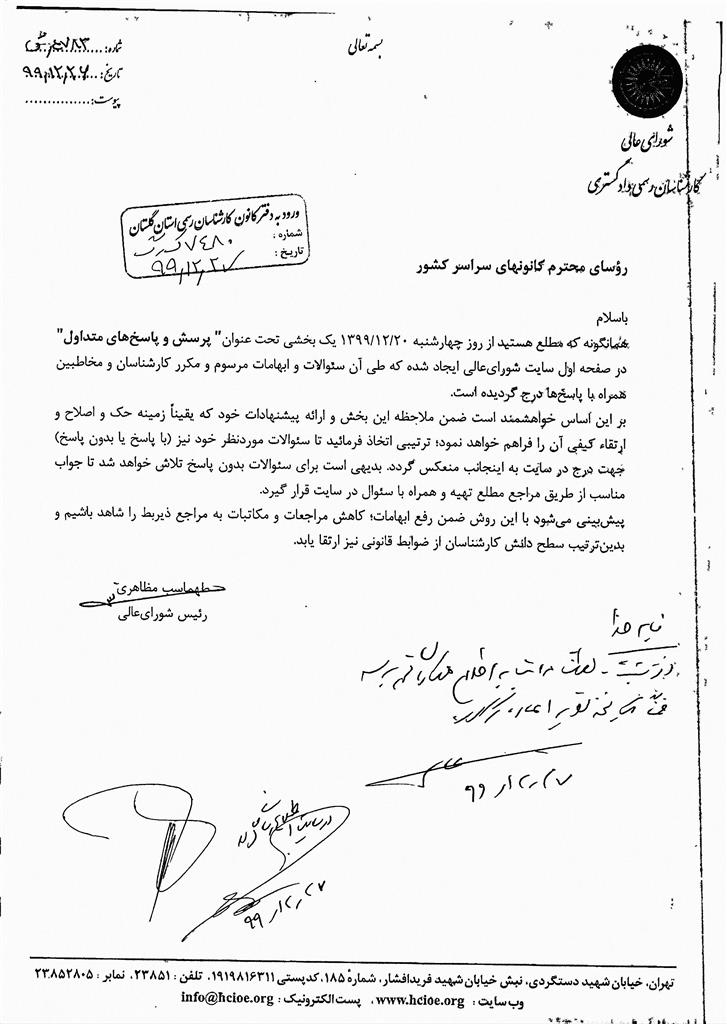 بسمه تعالی
شماره:
تاریخ: ۹۹/۱۲/۲۶
پیوست:
شورای عالی
کارشناسان رسمی دادگستری
ورود به دفتر کانون کارشناسان رسمی استان گلستان
شماره: ۷۴۸۰
تاریخ: ۹۹/۱۲/۲۷
رؤسای محترم کانونهای سراسر کشور
باسلام
همانگونه که مطلع هستید از روز چهارشنبه ۱۳۹۹/۱۲/۲۰ یک بخشی تحت عنوان" پرسش و پاسخ‌های متداول"
در صفحه اول سایت شورای‌عالی ایجاد شده که طی آن سئوالات و ابهامات مرسوم و مکرر کارشناسان و مخاطبین
همراه با پاسخ‌ها درج گردیده است.
بر این اساس خواهشمند است ضمن ملاحظه این بخش و ارائه پیشنهادات خود که یقیناً زمینه حک و اصلاح و
ارتقاء کیفی آن را فراهم خواهد نمود؛ ترتیبی اتخاذ فرمائید تا سئوالات موردنظر خود نیز (با پاسخ یا بدون پاسخ)
جهت درج در سایت به اینجانب منعکس گردد. بدیهی است برای سئوالات بدون پاسخ تلاش خواهد شد تا جواب
مناسب از طریق مراجع مطلع تهیه و همراه با سئوال در سایت قرار گیرد.
پیش‌بینی می‌شود با این روش ضمن رفع ابهامات؛ کاهش مراجعات و مکاتبات به مراجع ذیربط را شاهد باشیم و
بدین‌ترتیب سطح دانش کارشناسان از ضوابط قانونی نیز ارتقا یابد.
طهماسب مظاهری
رئیس شورای‌عالی
بنام خدا
۹۹/۱۲/۲۷
۹۹/۱۲/۲۷
تهران، خیابان شهید دستگردی، نبش خیابان شهید فریدافشار، شماره ۱۸۵، کدپستی ۱۹۱۹۸۱۶۳۱۱، تلفن : ۲۳۸۵۱، نمابر : ۲۳۸۵۲۸۰۵
وب سایت : www.hcioe.org ، پست الکترونیک : info@hcioe.org